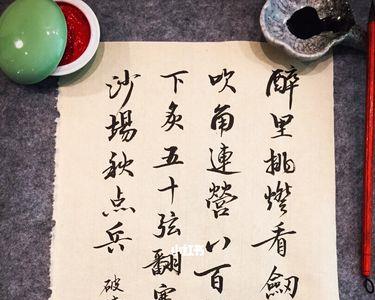 醉里挑燈看劍
吹角連營八百
下炙五十弦翻塞
沙場秋点兵
破
小红书